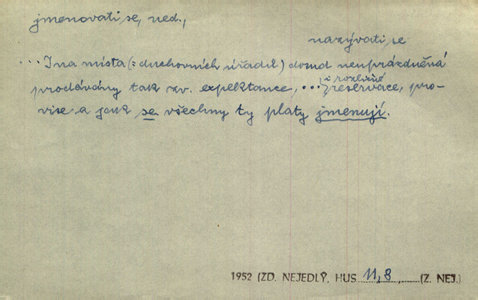 jmenovati se, ned.,
nazývati se
... Ina místa (: duchovních úřadů) dosud neuprázdněná
prodávány tak zv. expektance, ... rozličné
reservace, pro-
vise a jak se všechny ty platy jmenují.
1952 (ZD. NEJEDLÝ, HUS 11, 8 (Z. NEJ.)